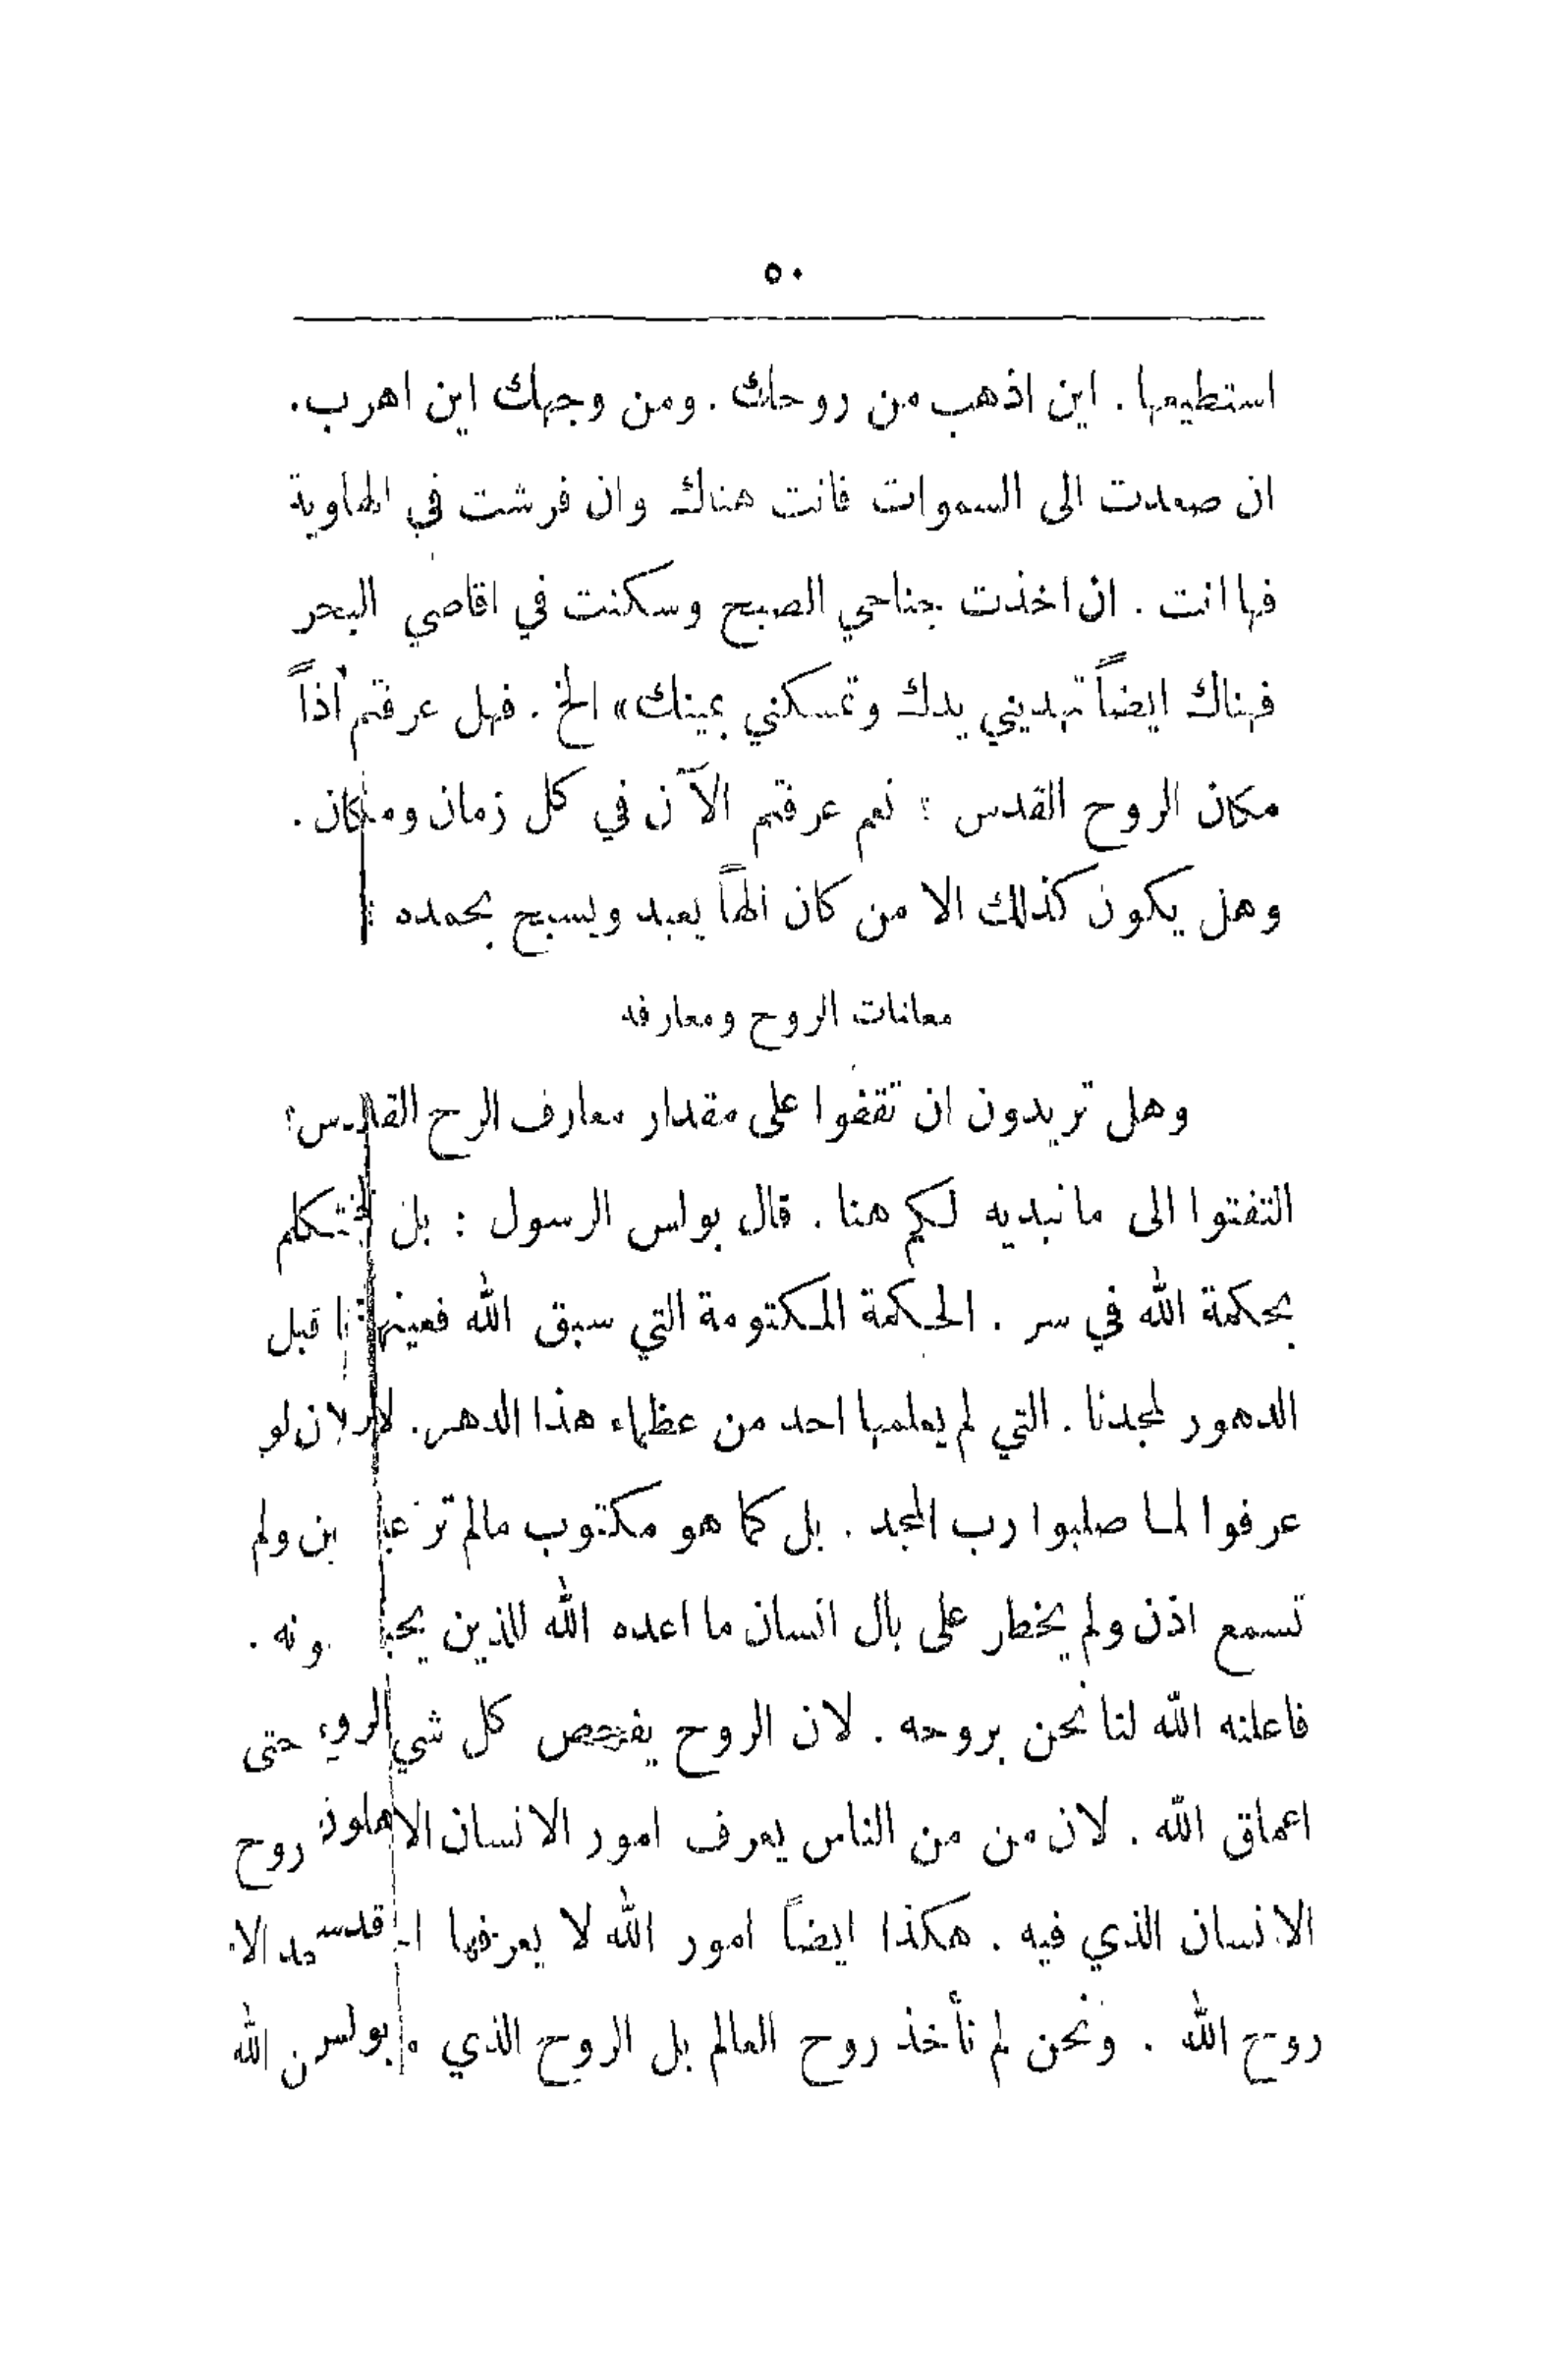 ٥٠
استطيعها . اين اذهب من روحك . ومن وجهك اين اهرب .
ان صعدت الى السموات فانت هناك وان فرشت في الهاوية
فها انت . ان اخذت جناحي الصبح وسكنت في اقاصي البحر
فهناك ايضاً تهديني يدك وتمسكني يمينك » الخ . فهل عرفتم اذاً
مكان الروح القدس ؟ نعم عرفتم الآن في كل زمان ومكان .
وهل يكون كذلك الا من كان الهاً يعبد ويسبح بحمده ؟
معانات الروح ومعارفه
وهل تريدون ان تقفوا على مقدار معارف الرح القدس ؟
التفتوا الى مانبديه لكم هنا . قال بولس الرسول : بل نتكلم
بحكمة الله في سر . الحكمة المكتومة التي سبق الله فعينها قبل
الدهور لمجدنا . التي لم يعلمها احد من عظماء هذا الدهر . لان لو
عرفوا لما صلبوا رب المجد . بل كما هو مكتوب مالم تر عين ولم
تسمع اذن ولم يخطر على بال انسان ما اعده الله للذين يحبونه .
فاعلنه الله لنا نحن بروحه . لان الروح يفحص كل شي حتى
اعماق الله . لان من من الناس يعرف امور الانسان الا روح
الانسان الذي فيه . هكذا ايضاً امور الله لا يعرفها احد الا
روح الله . ونحن لم نأخذ روح العالم بل الروح الذي من الله